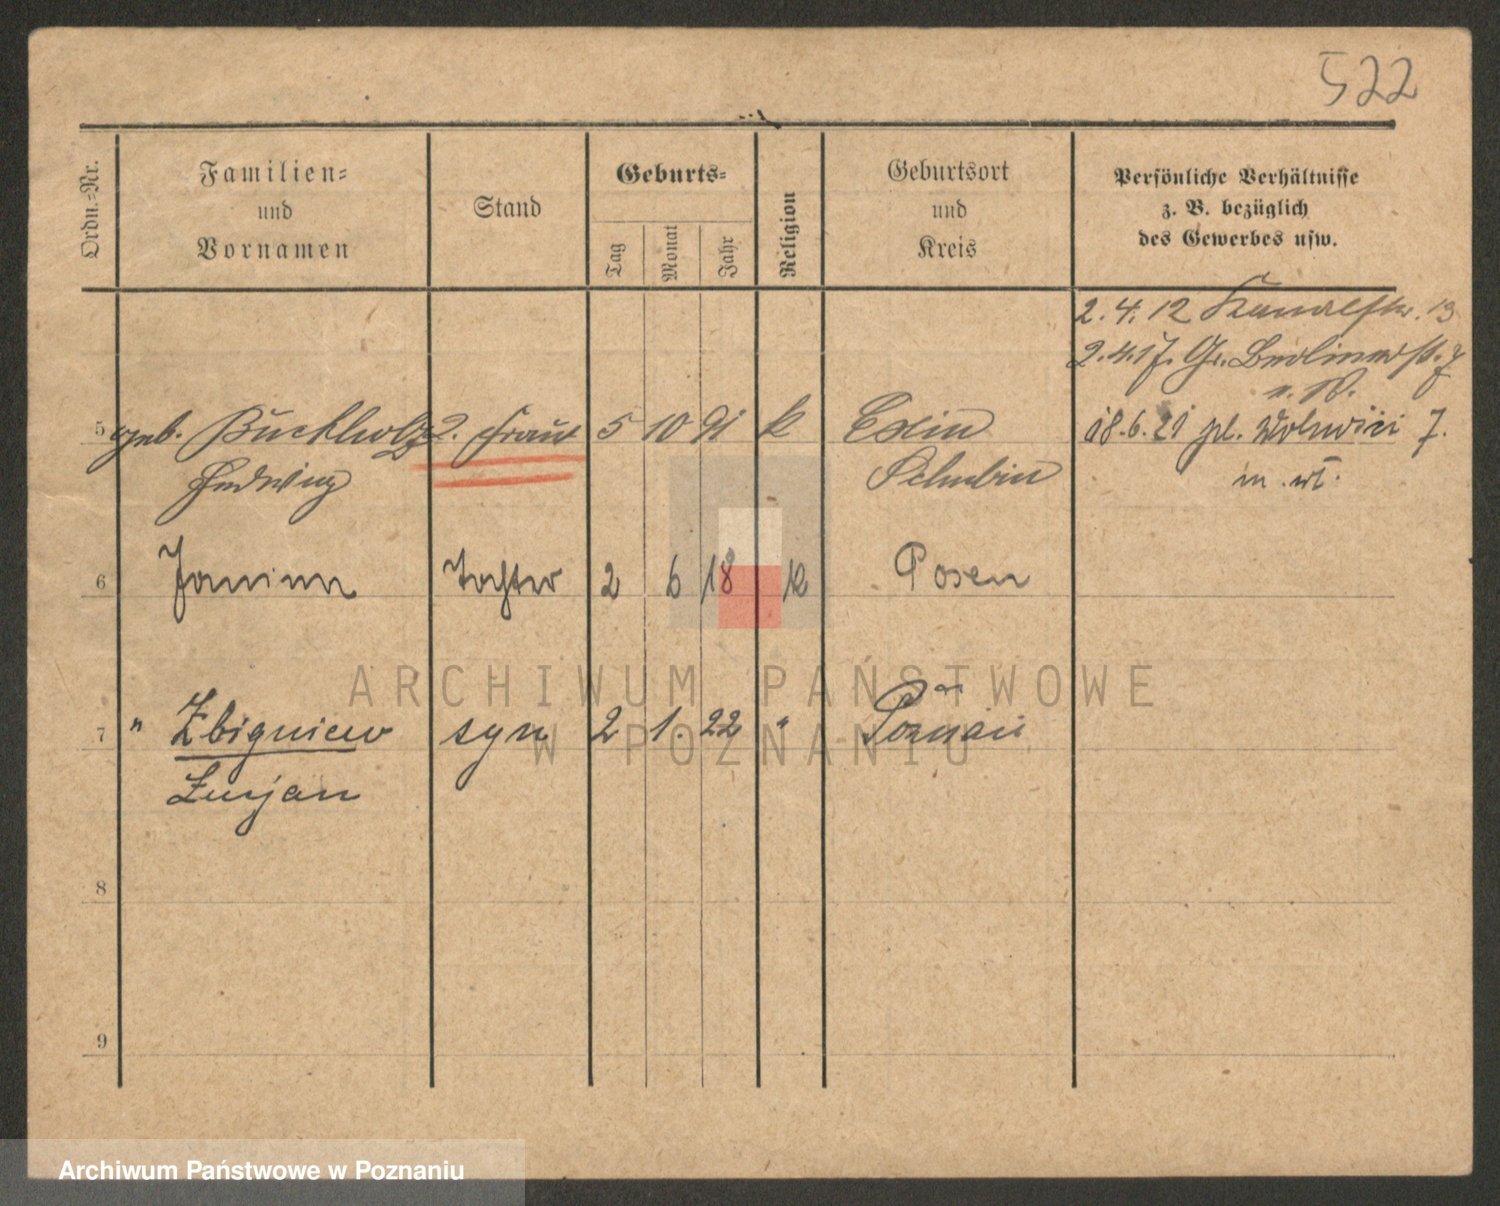 522
Ordn.-Nr.
Familien-
und
Vornamen
Stand
Geburts-
Tag
Monat
Jahr
Religion
Geburtsort
und
Kreis
Persönliche Verhältnisse
z. B. bezüglich
des Gewerbes usw.
2. 4. 12 Kanalstr. 13
2. 4. 17. Gr. Berlinerst. 7
5 geb. Buchholz 2. Frau 5 10 91 k Exin 18. 6. 21 pl. Wolności 7.
Hedwig Schubin
6 Janina Tochter 2 6 18 k Posen
7 " Zbigniew syn 2 1. 22 " Poznań
8
9
ARCHIWUM PAŃSTWOWE
W POZNANIU
Archiwum Państwowe w Poznaniu